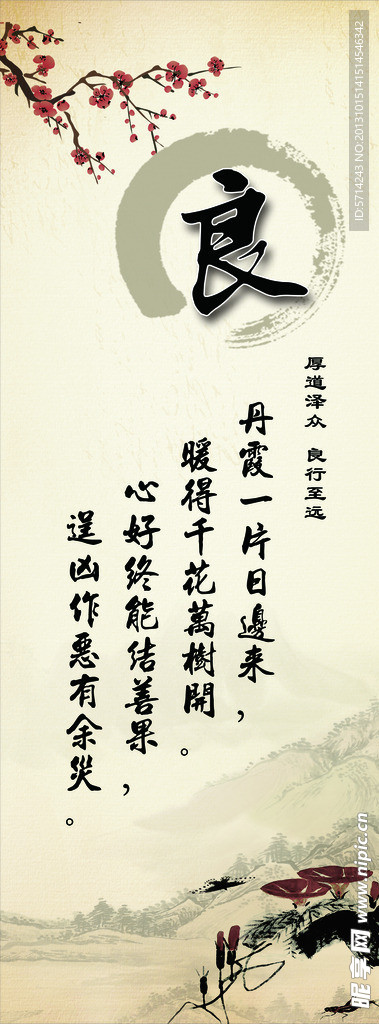 良
厚道泽众 良行至远
丹霞一片日邊来,
暖得千花萬樹開。
心好终能结善果,
逞凶作惡有余災。
ID:5714243 NO:20131015141514546342
昵享网 www.nipic.cn